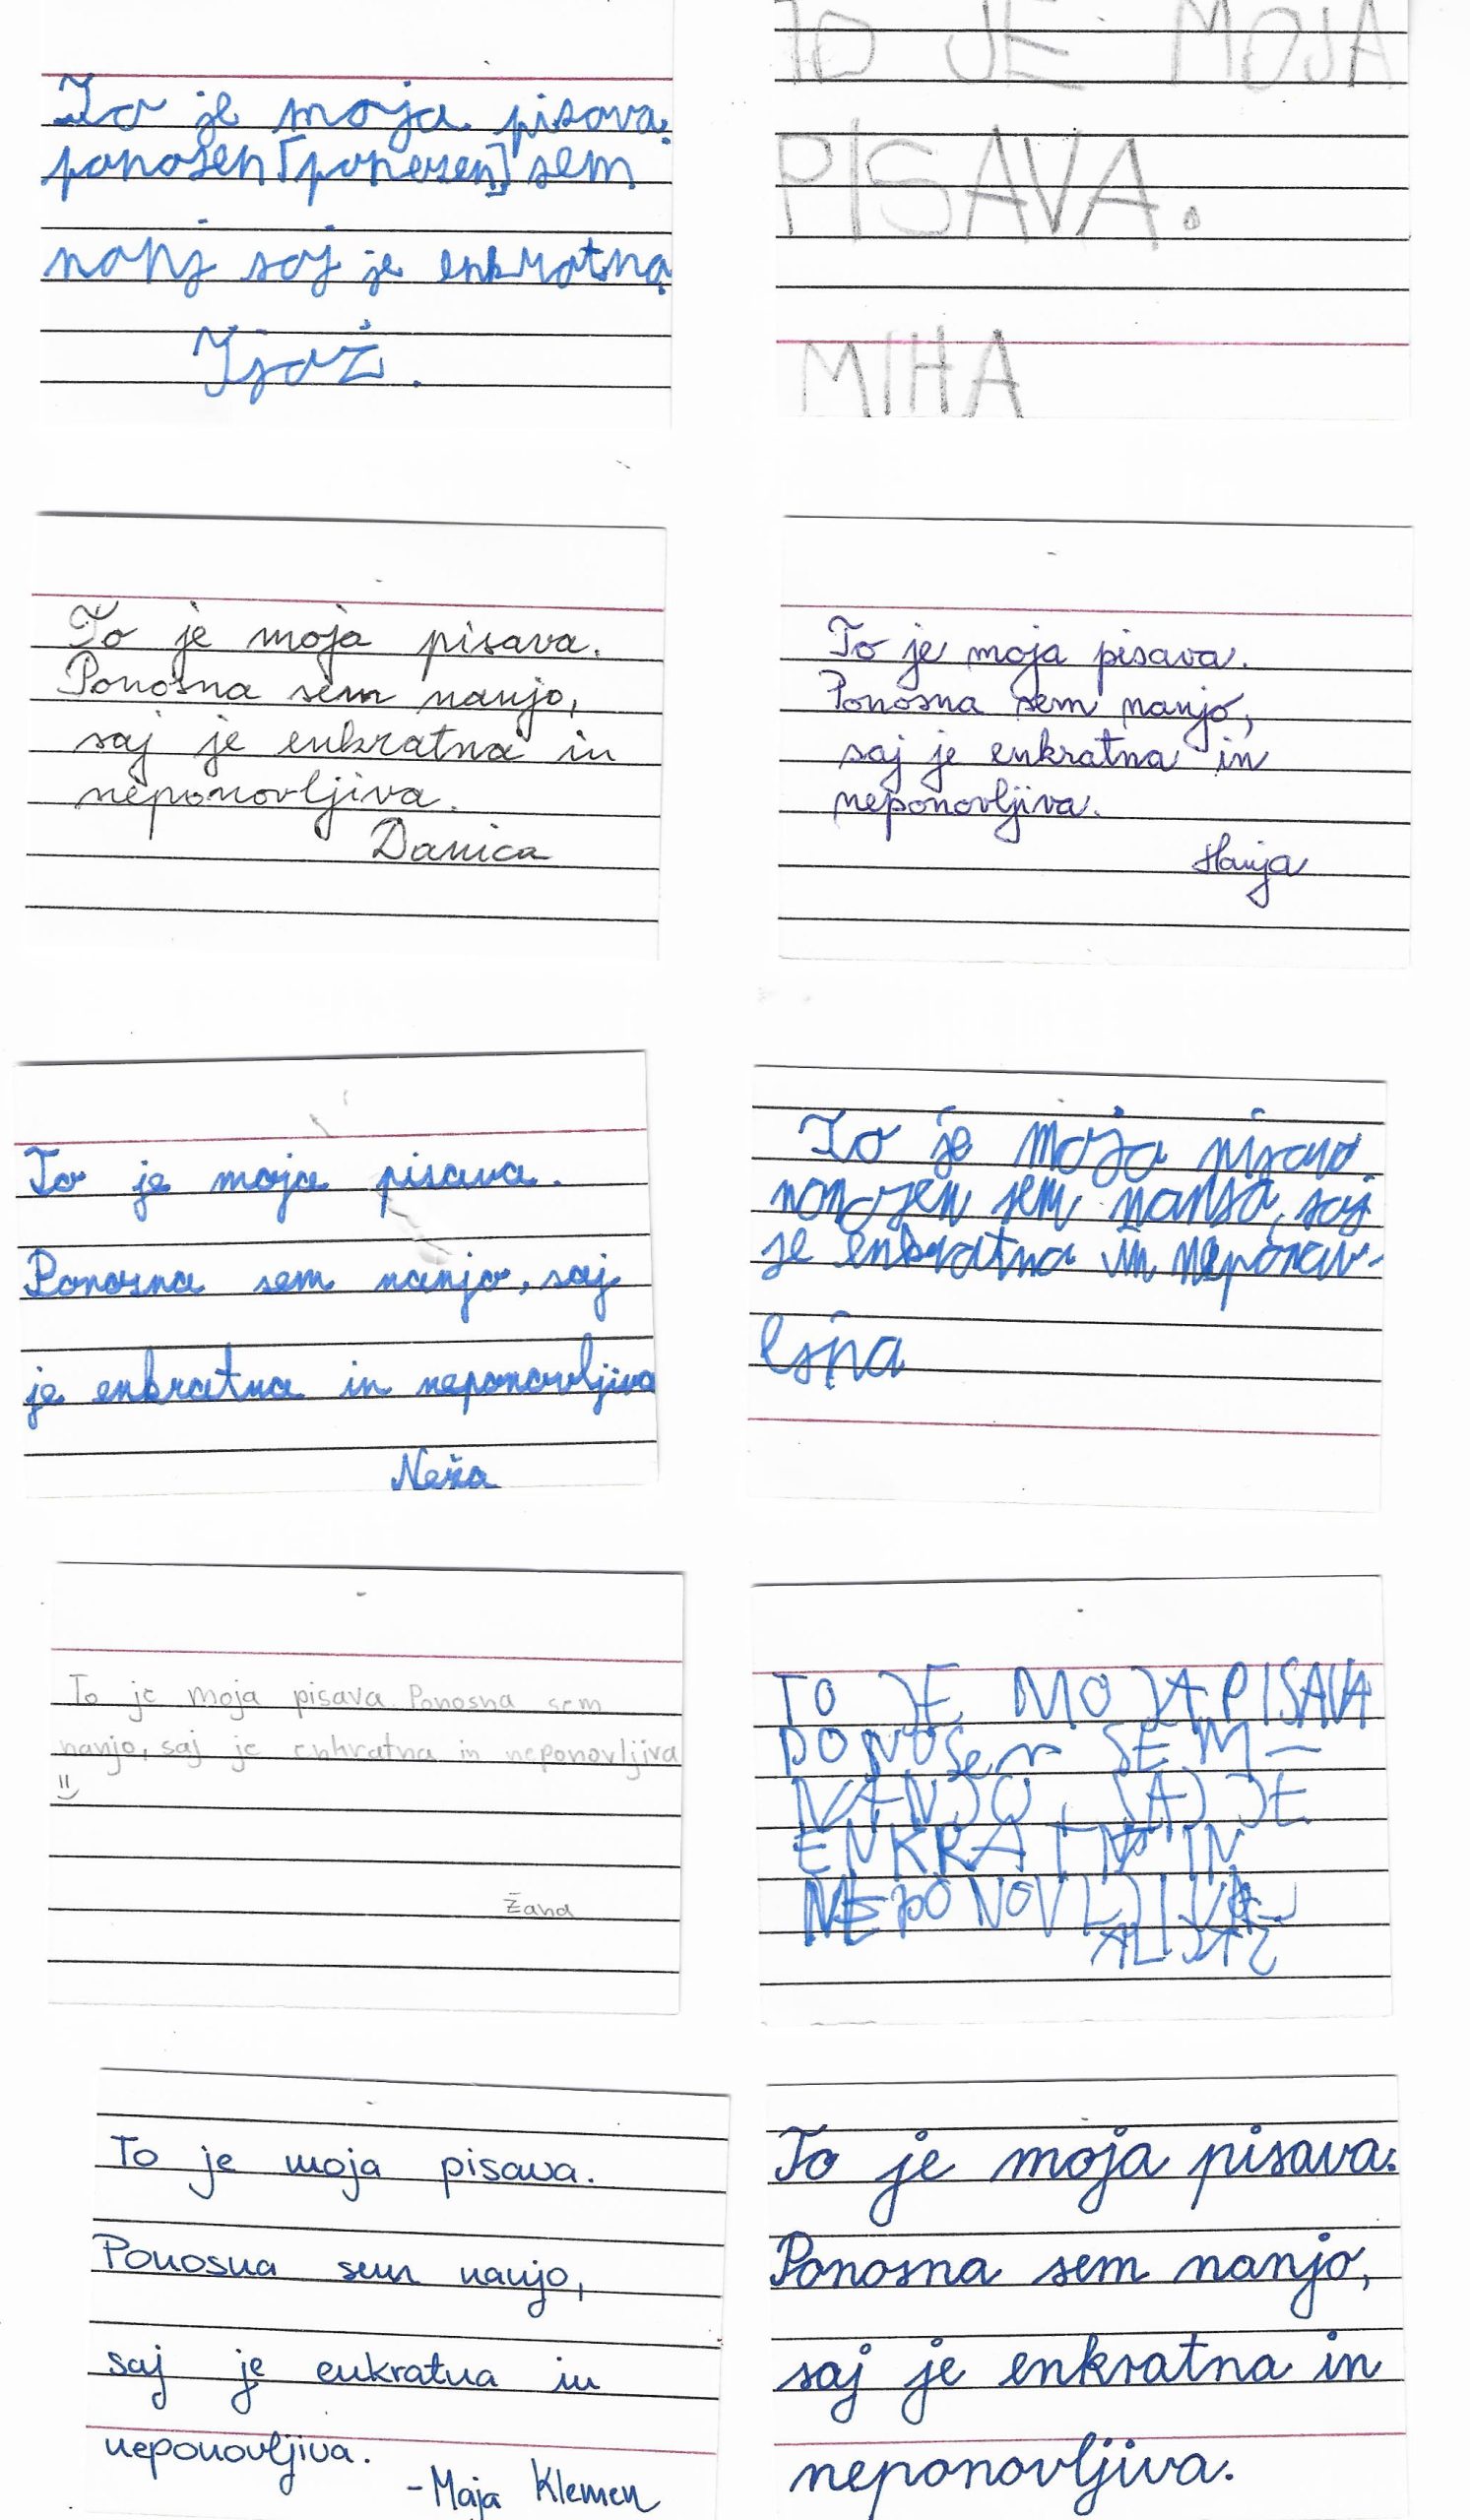 To je moja pisava.
ponosen [ponesen] sem
nanj saj je enkratna
Tjaž.
TO JE MOJA
PISAVA.
MIHA
To je moja pisava.
Ponosna sem nanjo,
saj je enkratna in
neponovljiva.
Danica
To je moja pisava.
Ponosna sem nanjo,
saj je enkratna in
neponovljiva.
Hanja
To je moja pisava.
Ponosna sem nanjo, saj
je enkratna in neponovljiva
Neža
To je moja pisava.
ponosen sem nanja, saj
je enkratna in neponov-
To je moja pisava. Ponosna sem
nanjo, saj je enkratna in neponovljiva
Žana
TO JE MOJA PISAVA
PONOSeN SEM
NANJO, SAJ JE
ENKRATNA IN
NEPONOVLJIVA
ALJAŽ
To je moja pisava.
Ponosna sem nanjo,
saj je enkratna in
neponovljiva.
-Maja Klemen
To je moja pisava.
Ponosna sem nanjo,
saj je enkratna in
neponovljiva.